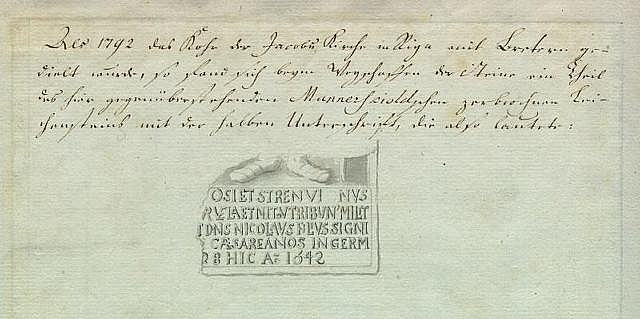 Als 1792 das Kohr der Jacobs Kirche in Riga mit Bretern ge-
dielt wurde, so fand sich beym Wegschaffen der Steine ein Theil
des hier gegenüberstehenden Mannerskioldschen zerbrochnen Lei-
chensteins mit der halben Unterschrift, die also lautete:
OSI ET STRENVI NVS
LA ET NITAV TRIBVN MILIT
DNS NICOLAVS FILIVS SIGNI
CÆSAREANOS IN GERM
28 HIC Aº 1642